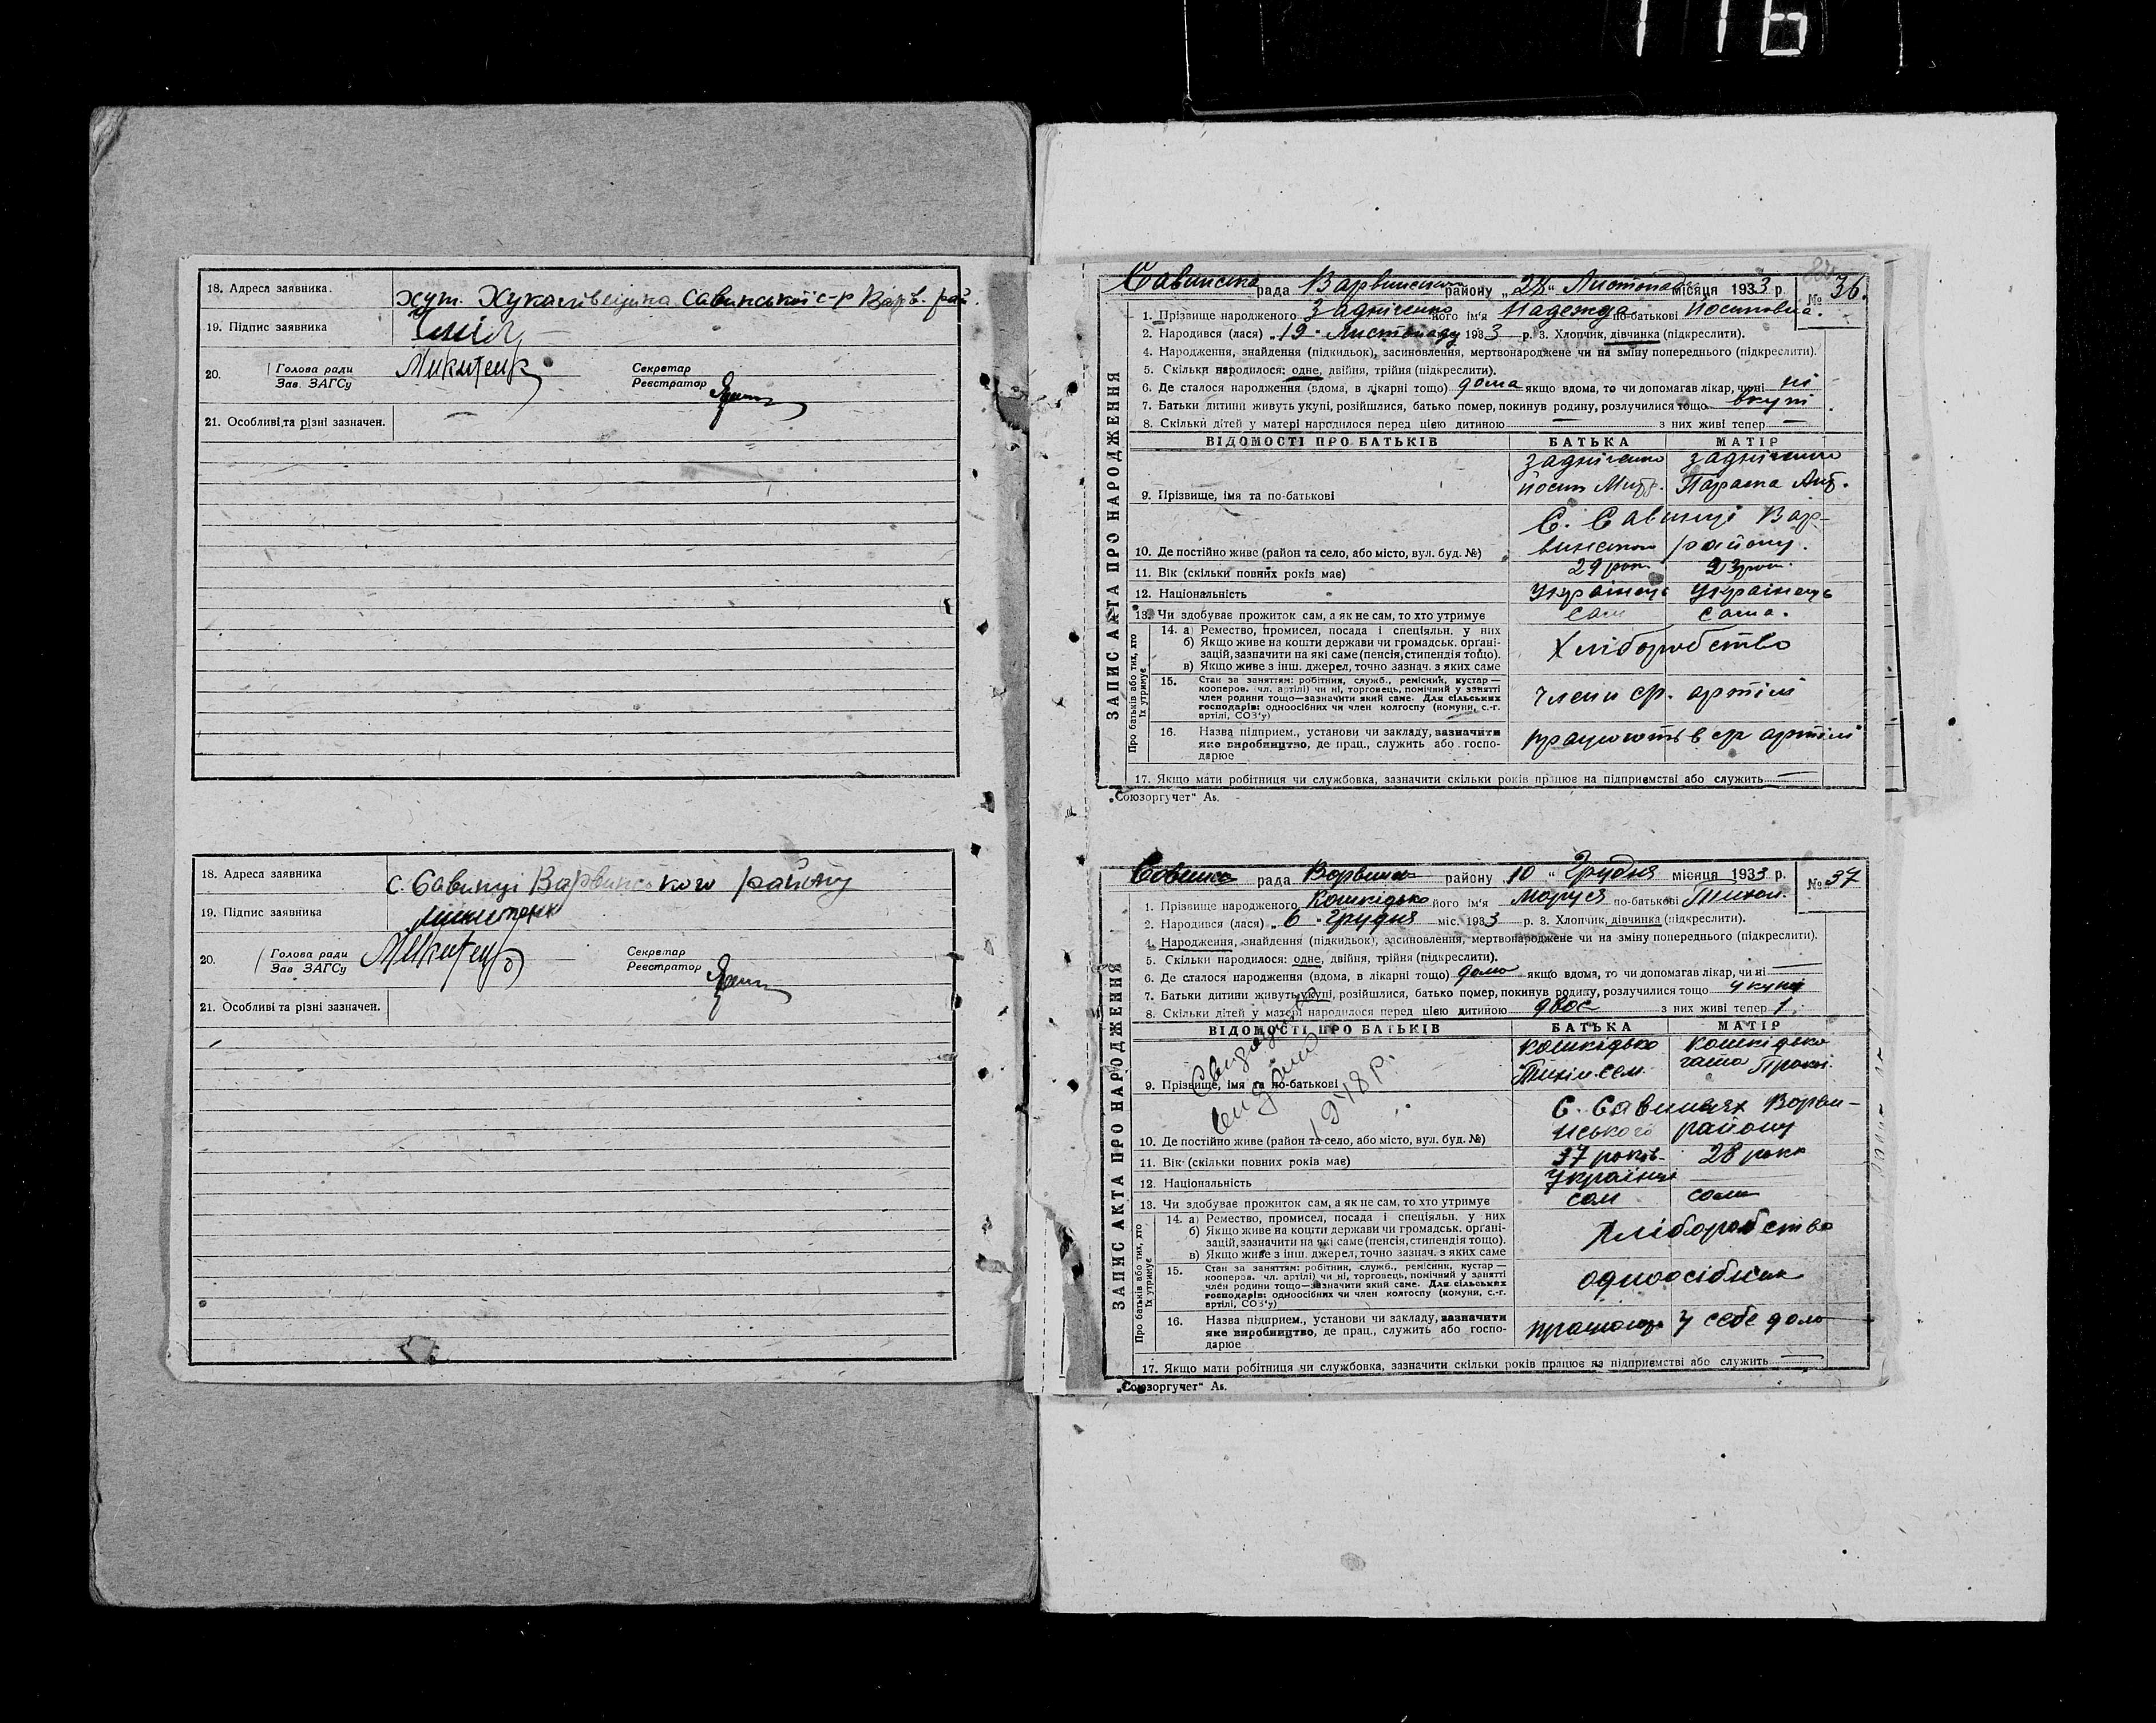 116
18. Адреса заявника.
хут. Жукалівщина Савинської с-р Варв. рай.
19. Підпис заявника
20. Голова ради
Зав. ЗАГСу
Микитенк
Секретар
Реєстратор
21. Особливі та різні зазначен. —
18. Адреса заявника
с. Савинці Варвинського району
19. Підпис заявника
Микитенк
20. Голова ради
Зав. ЗАГСу
Микитенко
Секретар
Реєстратор
21. Особливі та різні зазначен.
ЗАПИС АКТА ПРО НАРОДЖЕННЯ
Савинська рада Варвинського району „28“ Листопад місяця 1933 р. № 36.
1. Прізвище народженого Задніченко його ім'я Надежда по-батькові Йосиповна.
2. Народився (лася) „19“ Листопаду 1933 р. 3. Хлопчик, дівчинка (підкреслити).
4. Народження, знайдення (підкидьок), засиновлення, мертвонароджене чи на зміну попереднього (підкреслити).
5. Скільки народилося: одне, двійня, трійня (підкреслити).
6. Де сталося народження (вдома, в лікарні тощо) дома якщо вдома, то чи допомагав лікар, чи ні ні
7. Батьки дитини живуть укупі, розійшлися, батько помер, покинув родину, розлучилися тощо вкупі
8. Скільки дітей у матері народилося перед цією дитиною — з них живі тепер —
ВІДОМОСТІ ПРО БАТЬКІВ БАТЬКА МАТІР
9. Прізвище, імя та по-батькові
Задніченко Задніченко
Йосип Параска
10. Де постійно живе (район та село, або місто, вул. буд. №)
С. Савинці Вар-
винського району.
11. Вік (скільки повних років має) 29 рок. 23 рок.
12. Національність Українець Українець
13. Чи здобуває прожиток сам, а як не сам, то хто утримує сам сама.
Про батьків або тих, хто їх утримує
14. а) Ремество, промисел, посада і спеціяльн. у них
б) Якщо живе на кошти держави чи громадськ. органі-
зацій, зазначити на які саме (пенсія, стипендія тощо).
в) Якщо живе з інш. джерел, точно зазнач. з яких саме
Хліборобство
15. Стан за заняттям: робітник, служб., ремісник, кустар —
кооперов. (чл. артілі) чи ні, торговець, помічний у занятті
член родини тощо—зазначити який саме. Для сільських
господарів: одноосібник чи член колгоспу (комуни, с.-г.
артілі, СОЗ'у)
члени ср. артілі
16. Назва підприєм., установи чи закладу, зазначити
яке виробництво, де прац., служить або госпо-
дарює
працюють в ср артілі
17. Якщо мати робітниця чи службовка, зазначити скільки років працює на підприємстві або служить —
„Союзоргучет“ А5.
ЗАПИС АКТА ПРО НАРОДЖЕННЯ
Савинск рада Варвинск району 10 “ Грудня місяця 1933 р. № 37
1. Прізвище народженого Кошкідько його ім'я Маруся по-батькові Тихон.
2. Народився (лася) „6“ Грудня міс. 1933 р. 3. Хлопчик, дівчинка (підкреслити).
4. Народження, знайдення (підкидьок), засиновлення, мертвонароджене чи на зміну попереднього (підкреслити).
5. Скільки народилося: одне, двійня, трійня (підкреслити).
6. Де сталося народження (вдома, в лікарні тощо) дома якщо вдома, то чи допомагав лікар, чи ні —
7. Батьки дитини живуть укупі, розійшлися, батько помер, покинув родину, розлучилися тощо укупі
8. Скільки дітей у матері народилося перед цією дитиною двоє з них живі тепер 1
ВІДОМОСТІ ПРО БАТЬКІВ БАТЬКА МАТІР
9. Прізвище, імя та по-батькові
Кошкідько Кошкідько
Тихін Сем.
1948р.
10. Де постійно живе (район та село, або місто, вул. буд. №)
С. Савинцях Варви-
нського району
11. Вік (скільки повних років має) 37 років 28 рокв
12. Національність Українці —
13. Чи здобуває прожиток сам, а як не сам, то хто утримує сам сама
Про батьків або тих, хто їх утримує
14. а) Ремество, промисел, посада і спеціяльн. у них
б) Якщо живе на кошти держави чи громадськ. органі-
зацій, зазначити на які саме (пенсія, стипендія тощо).
в) Якщо живе з інш. джерел, точно зазнач. з яких саме
Хліборобство
15. Стан за заняттям: робітник, служб., ремісник, кустар —
кооперов. (чл. артілі) чи ні, торговець, помічний у занятті
член родини тощо—зазначити який саме. Для сільських
господарів: одноосібник чи член колгоспу (комуни, с.-г.
артілі, СОЗ'у)
одноосібник
16. Назва підприєм., установи чи закладу, зазначити
яке виробництво, де прац., служить або госпо-
дарює
у себе дома
17. Якщо мати робітниця чи службовка, зазначити скільки років працює на підприємстві або служить —
„Союзоргучет“ А5.